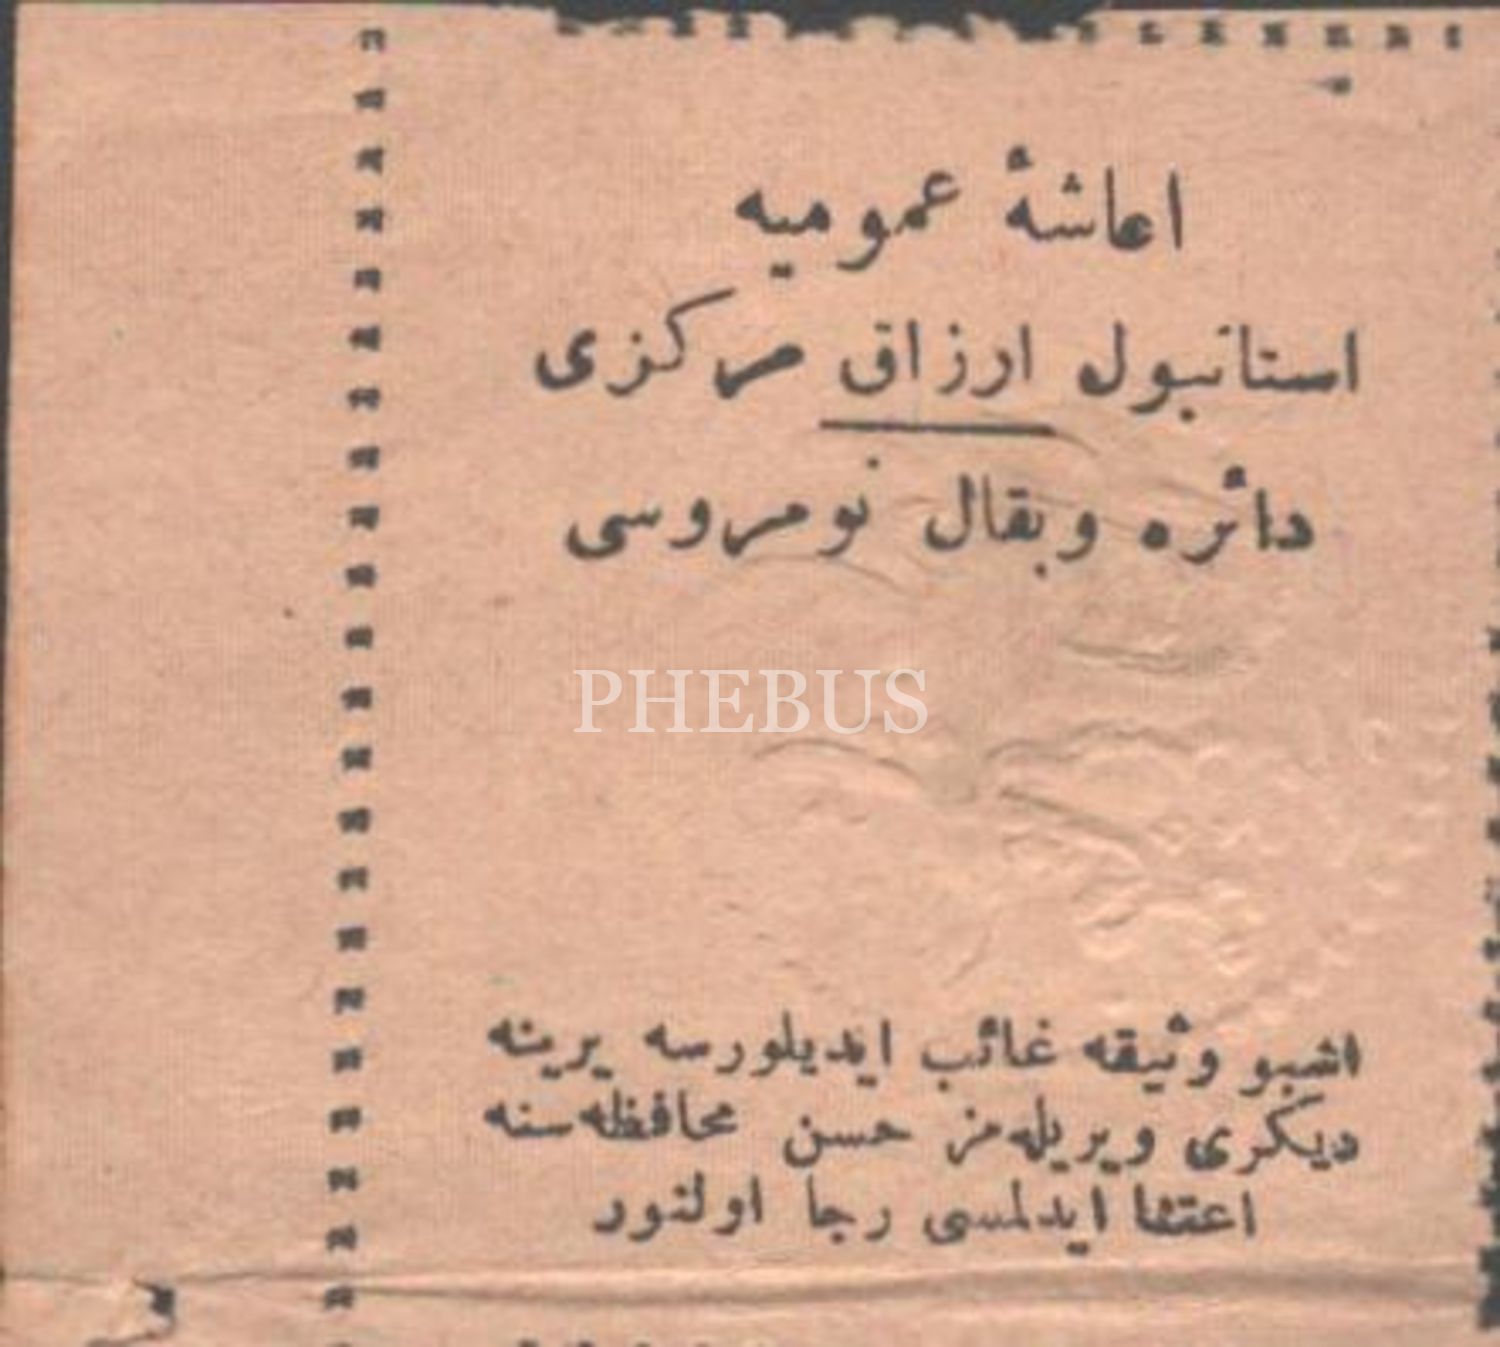 اعاشهٔ عمومیه
استانبول ارزاق مرکزی
دائره وبقال نومروسی
PHEBUS
اشبو وثیقه غائب ایدیلورسه یرینه
دیکری ویریله‌مز حسن محافظه‌سنه
اعتنا ایدلمسی رجا اولنور